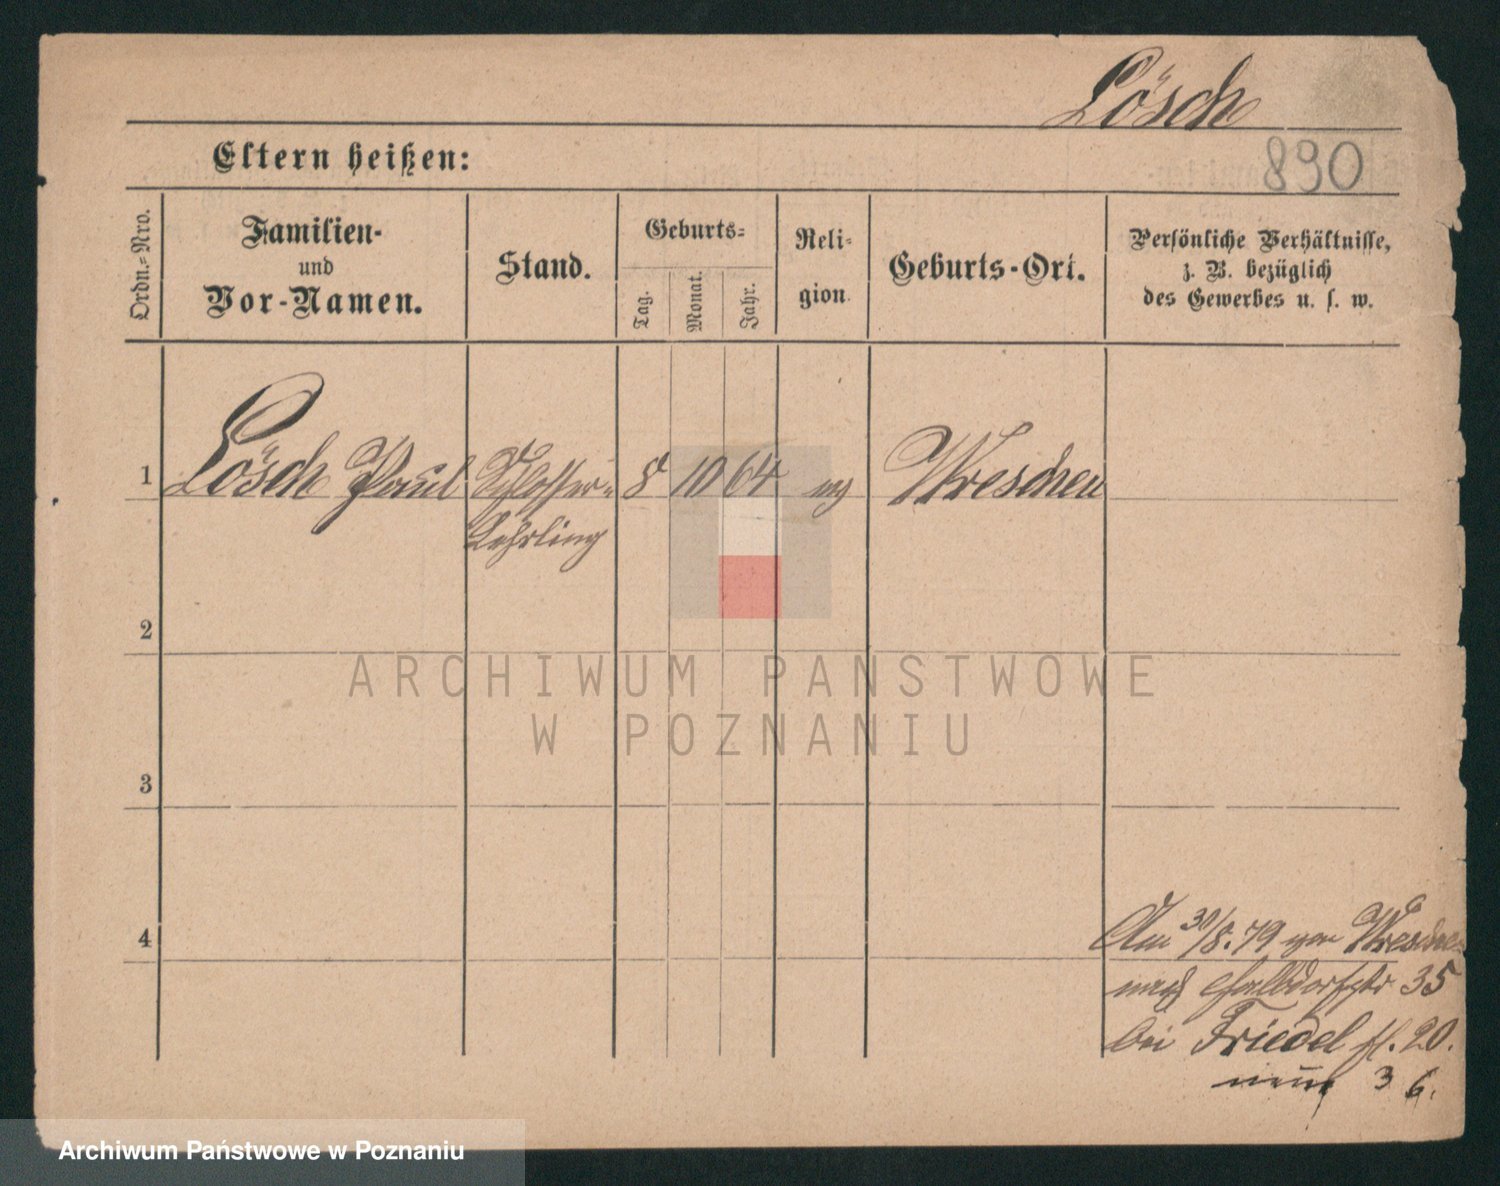 Lösch
890
Eltern heißen:
Ordn.=Nro.
Familien-
und
Vor-Namen.
Stand.
Geburts=
Tag.
Monat.
Jahr.
Reli=
gion.
Geburts-Ort.
Persönliche Verhältnisse,
z. B. bezüglich
des Gewerbes u. s. w.
1 Lösch Paul Schlosser= 8 10 64 ev Wreschen
Lehrling
2
3
4
Am 30/8.79 von Wreschen
nach Halbdorfstr 35
bei Friedel fl. 20.
neue 36.
ARCHIWUM PANSTWOWE
W POZNANIU
Archiwum Państwowe w Poznaniu